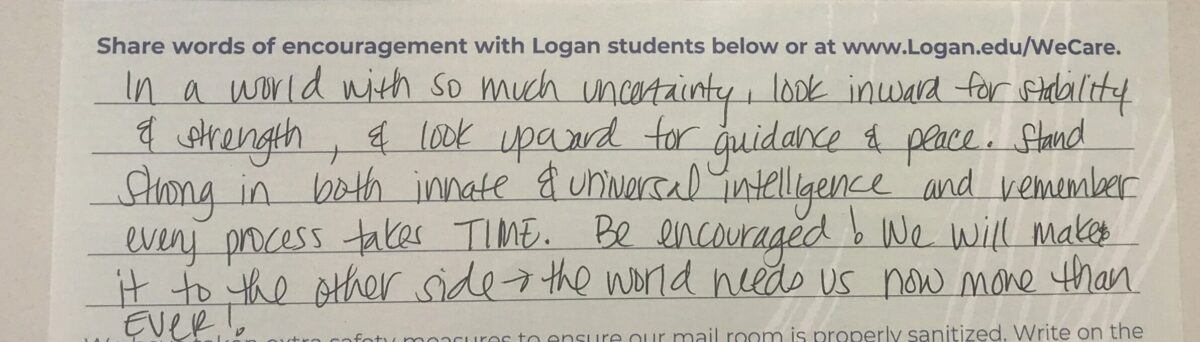 Share words of encouragement with Logan students below or at www.Logan.edu/WeCare.
In a world with so much uncertainty, look inward for stability
& strength, & look upward for guidance & peace. Stand
Strong in both innate & universal intelligence and remember
every process takes TIME. Be encouraged! We will make
it to the other side → the world needs us now more than
EVER!
extra safety measures to ensure our mail room is properly sanitized. Write on the